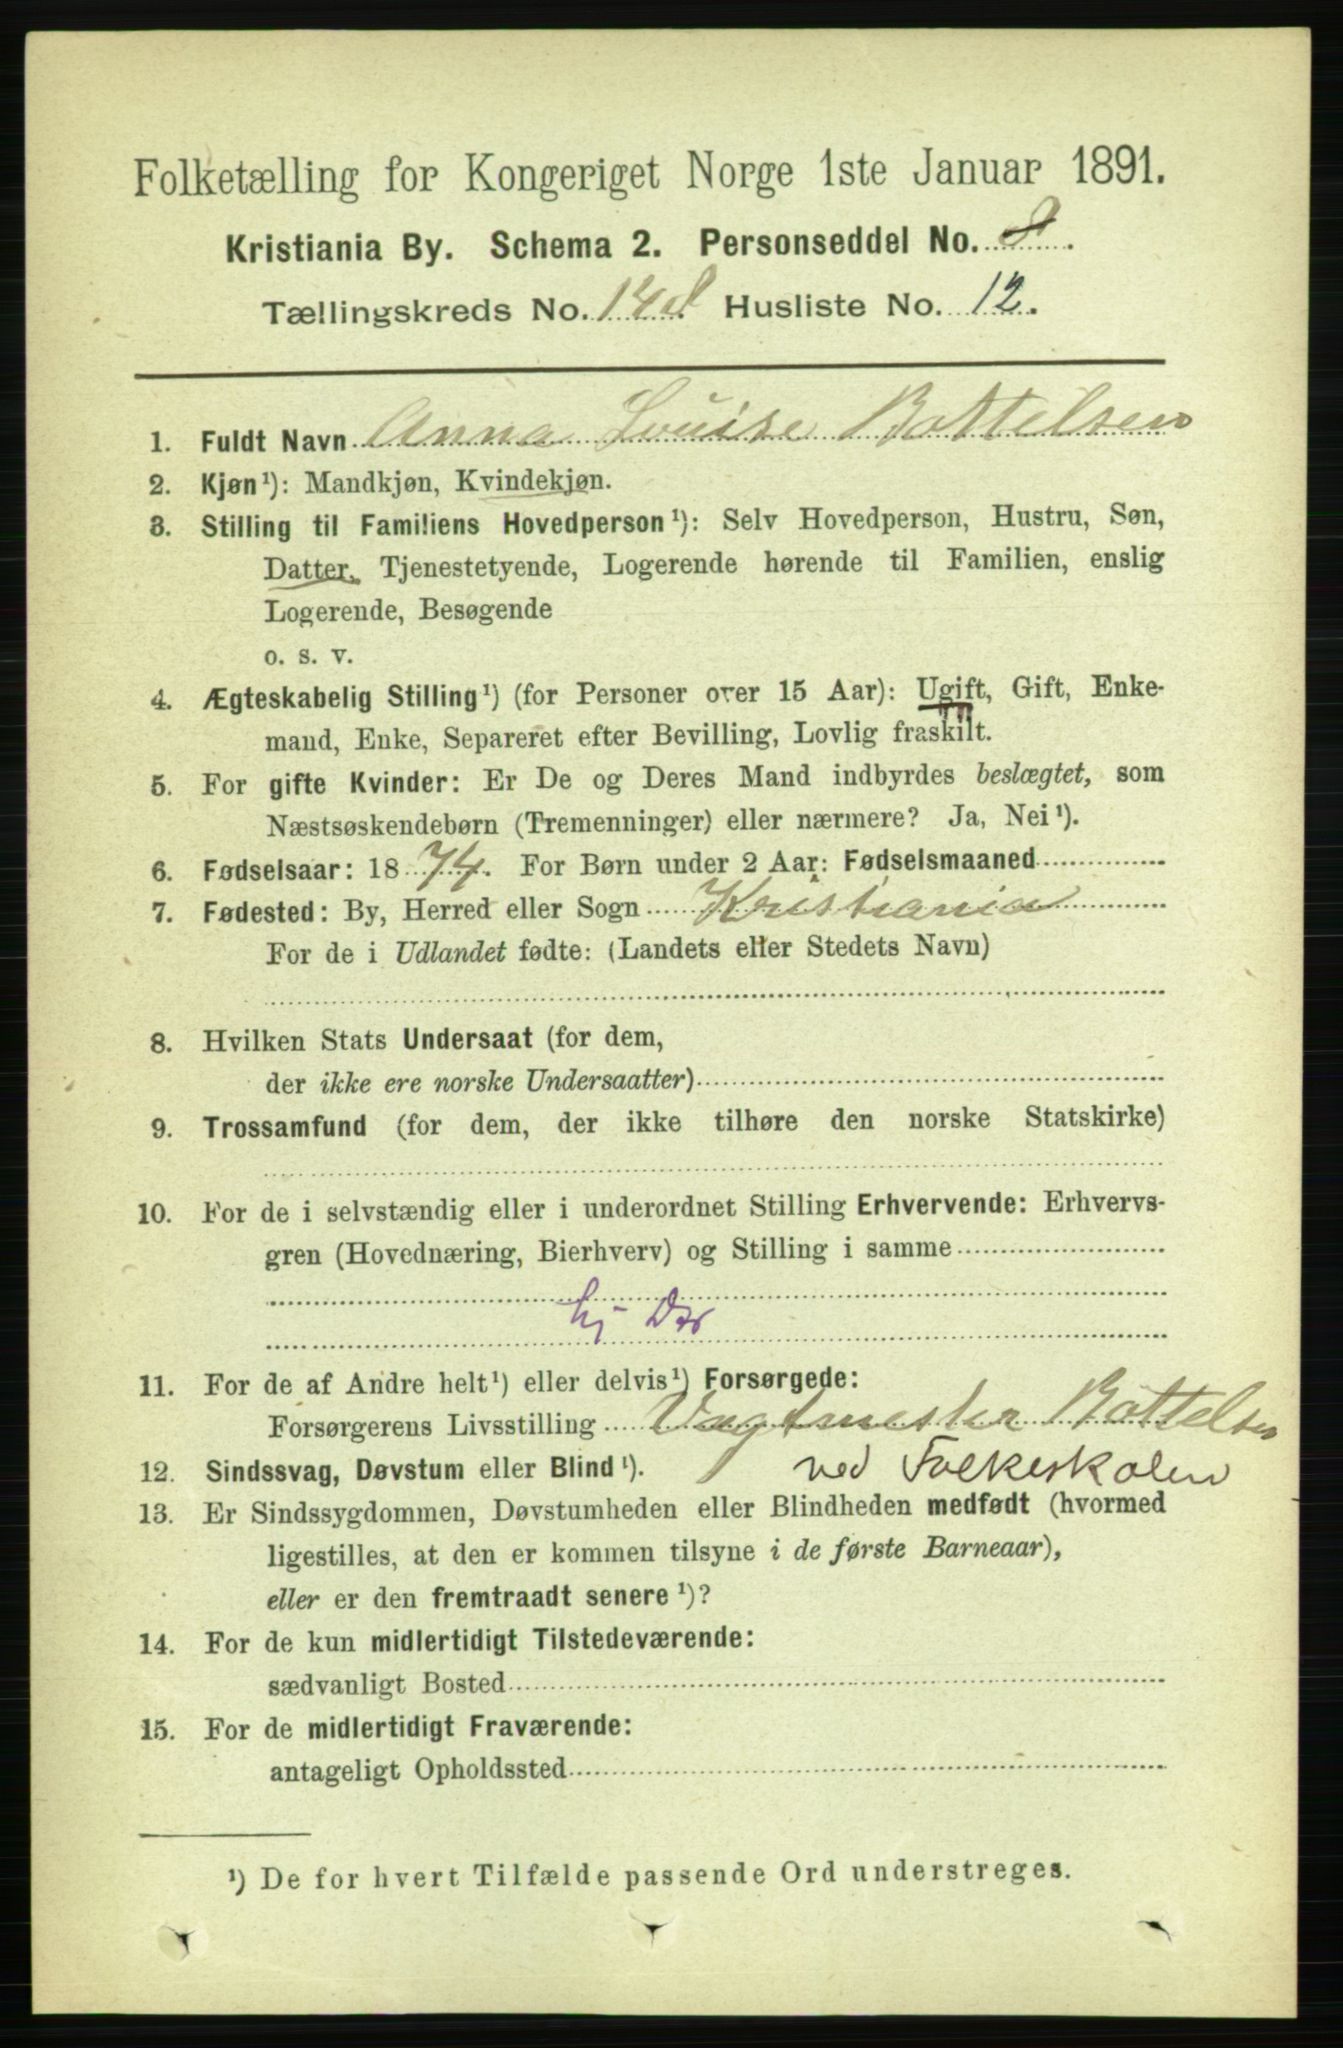 Folketælling for Kongeriget Norge 1ste Januar 1891.
Kristiania By. Schema 2. Personseddel No. 8.
Tællingskreds No. 148 Husliste No. 12.
1. Fuldt Navn Anna Louise Bottelsen
2. Kjøn¹): Mandkjøn, Kvindekjøn.
3. Stilling til Familiens Hovedperson¹): Selv Hovedperson, Hustru, Søn,
Datter, Tjenestetyende, Logerende hørende til Familien, enslig
Logerende, Besøgende
o. s. v.
4. Ægteskabelig Stilling¹) (for Personer over 15 Aar): Ugift, Gift, Enke-
mand, Enke, Separeret efter Bevilling, Lovlig fraskilt.
5. For gifte Kvinder: Er De og Deres Mand indbyrdes beslægtet, som
Næstsøskendebørn (Tremenninger) eller nærmere? Ja, Nei¹).
6. Fødselsaar: 1874. For Børn under 2 Aar: Fødselsmaaned
7. Fødested: By, Herred eller Sogn Kristiania
For de i Udlandet fødte: (Landets eller Stedets Navn)
8. Hvilken Stats Undersaat (for dem,
der ikke ere norske Undersaatter)
9. Trossamfund (for dem, der ikke tilhøre den norske Statskirke)
10. For de i selvstændig eller i underordnet Stilling Erhvervende: Erhvervs-
gren (Hovednæring, Bierhverv) og Stilling i samme
hj Dtr
11. For de af Andre helt¹) eller delvis¹) Forsørgede:
Forsørgerens Livsstilling Vagtmester Bottelsen
12. Sindssvag, Døvstum eller Blind¹). ved Folkeskolen
13. Er Sindssygdommen, Døvstumheden eller Blindheden medfødt (hvormed
ligestilles, at den er kommen tilsyne i de første Barneaar),
eller er den fremtraadt senere¹)?
14. For de kun midlertidigt Tilstedeværende:
sædvanligt Bosted
15. For de midlertidigt Fraværende:
antageligt Opholdssted
¹) De for hvert Tilfælde passende Ord understreges.